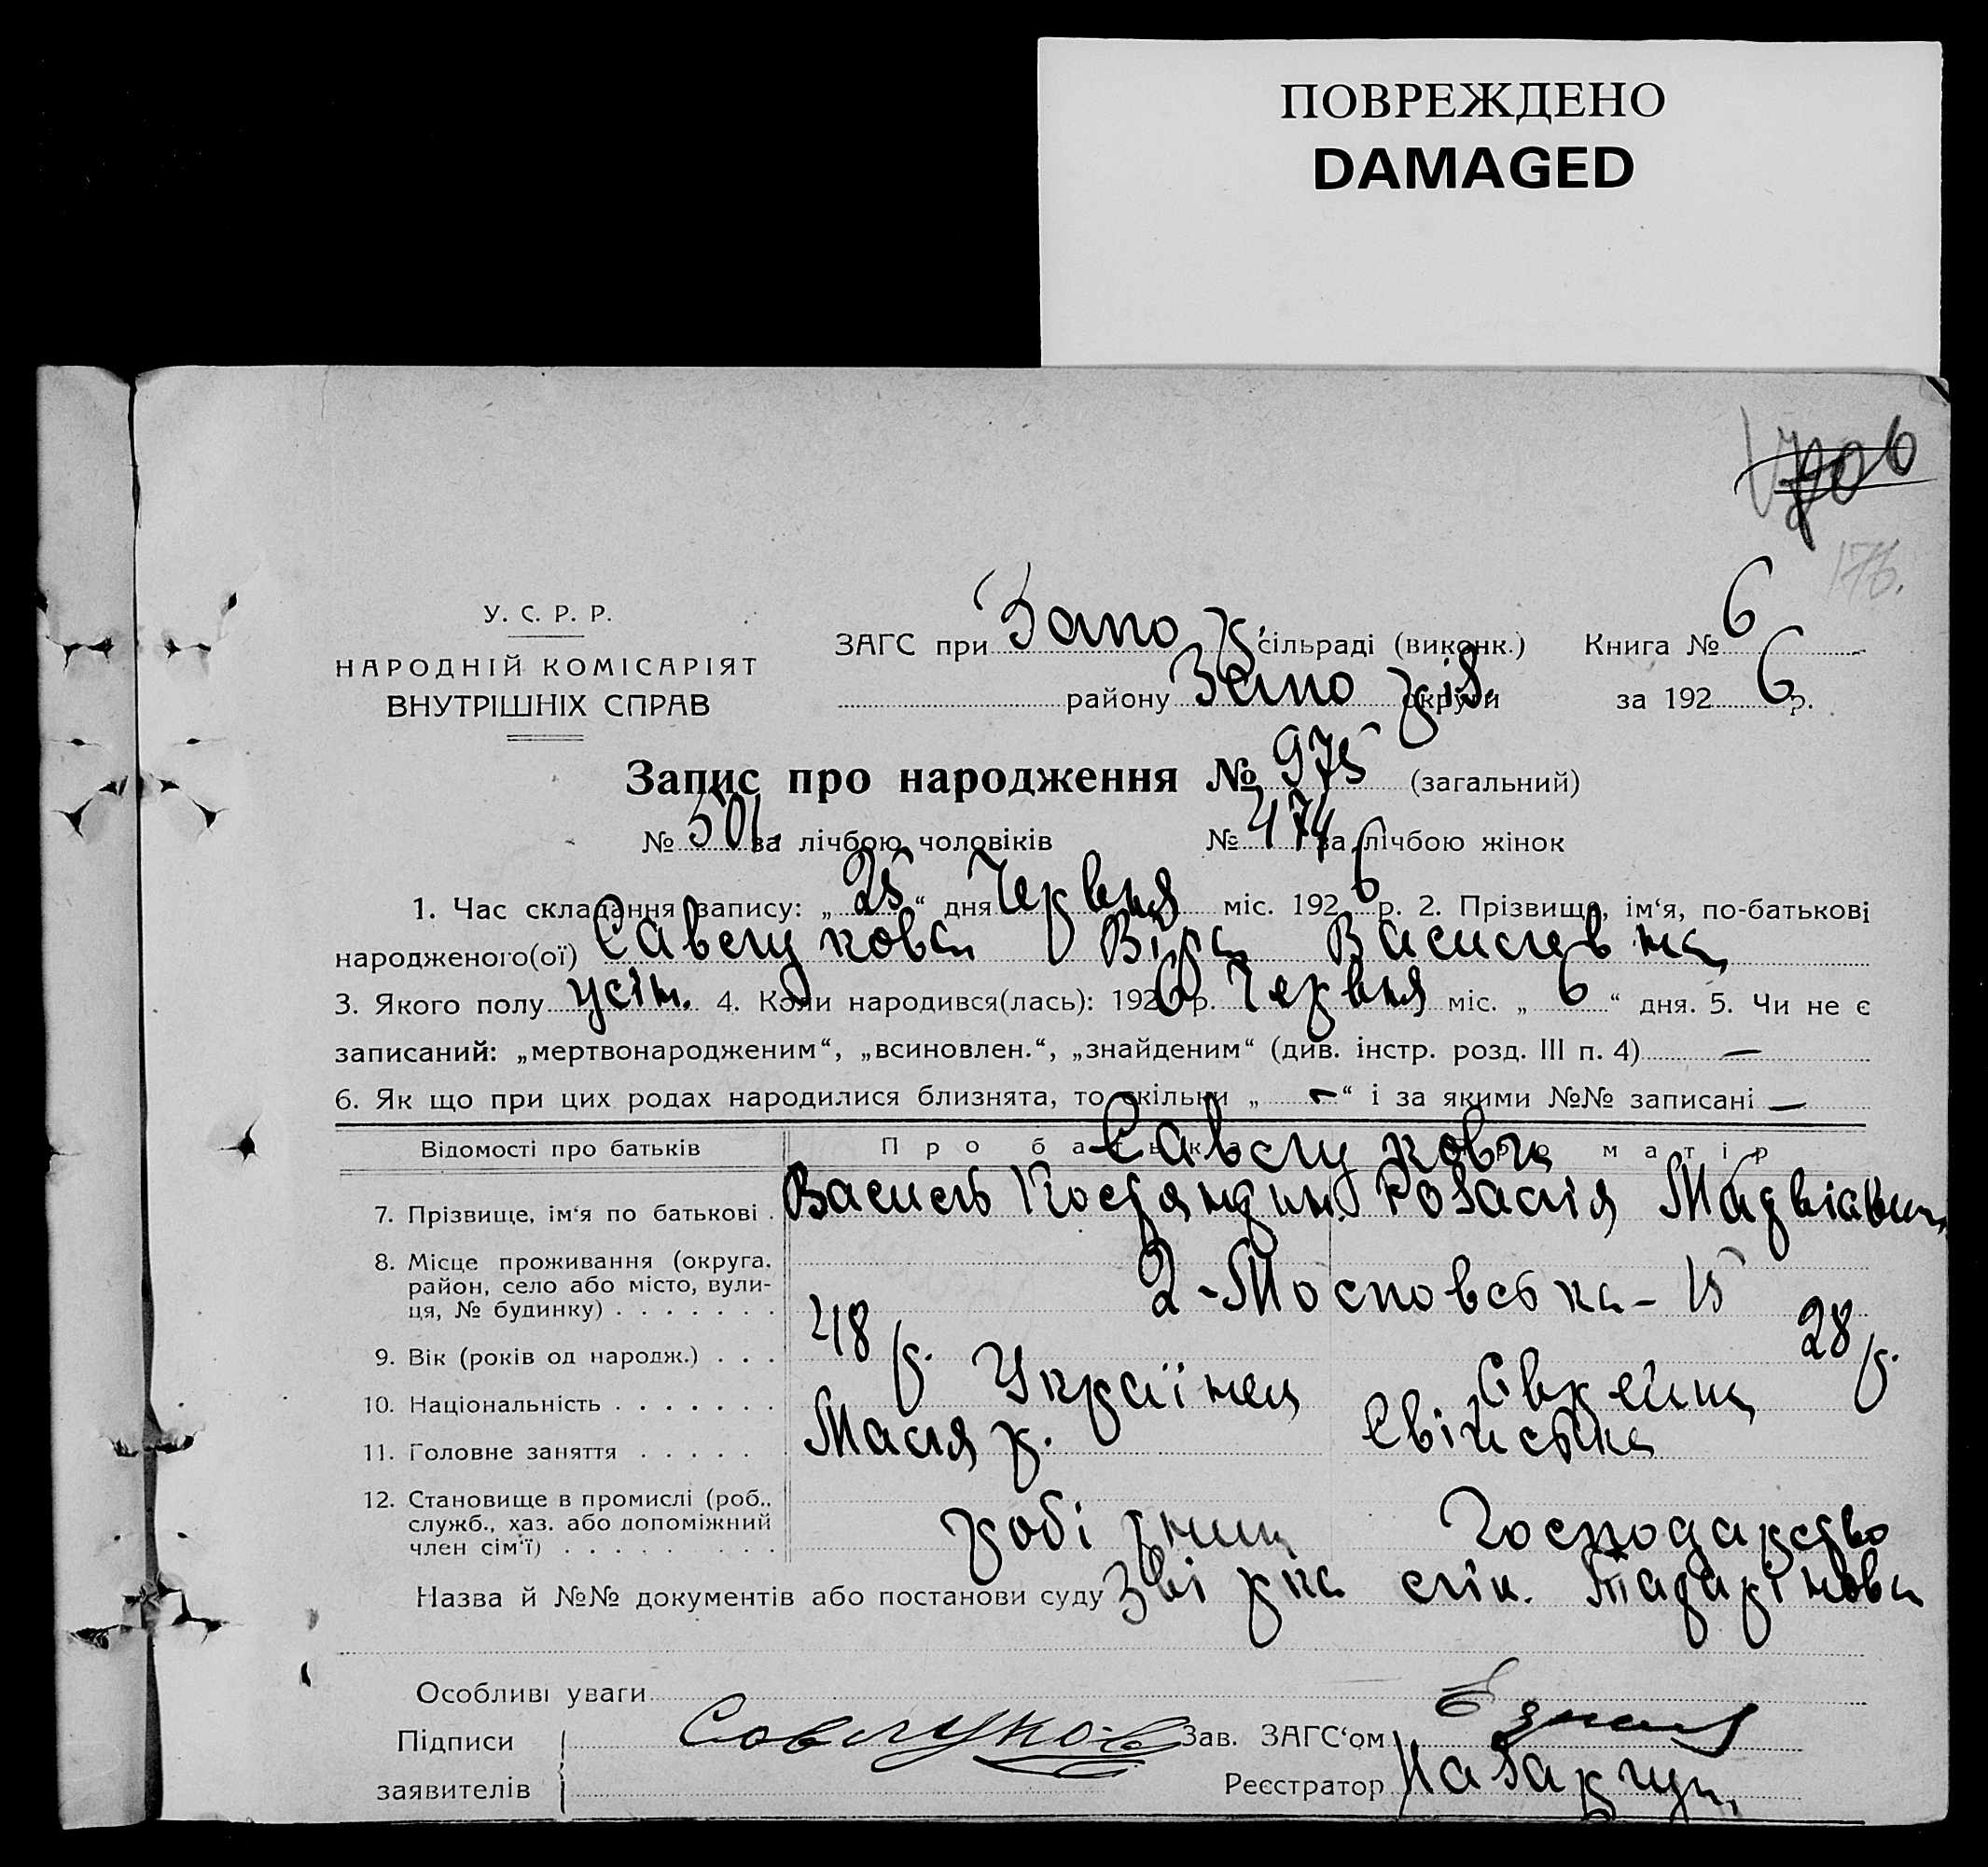 ПОВРЕЖДЕНО
DAMAGED
176.
У. С. Р. Р.
НАРОДНІЙ КОМІСАРІЯТ
ВНУТРІШНІХ СПРАВ
ЗАГС при Запор. сільраді (виконк.) Книга № 6
району Запоріз. округи за 1926 р.
Запис про народження № 975 (загальний)
№ 501. за лічбою чоловіків № 474 за лічбою жінок
1. Час складання запису: „25“ дня Червня міс. 1926 р. 2. Прізвище, ім‘я, по-батькові
народженого(ої) Савелукова Віра Василевна
3. Якого полу жін. 4. Коли народився(лась): 1926 р. Червня міс. „6“ дня. 5. Чи не є
записаний: „мертвонародженим“, „всиновлен.“, „знайденим“ (див. інстр. розд. III п. 4) —
6. Як що при цих родах народилися близнята, то скільки „—“ і за якими №№ записані —
Відомості про батьків Про батька Про матір
Савелукови
7. Прізвище, ім‘я по батькові . Василь Костянтин. Розалія Матвіавна
8. Місце проживання (округа, район, село або місто, вулиця, № будинку) . . . . . . . 2-Московська-15
9. Вік (років од народж.) . . . 48 р. 28 р.
10. Національність . . . . . . . Українец Єврейка
11. Головне заняття . . . . . Маляр. Свійське
12. Становище в промислі (роб., служб., хаз. або допоміжний член сім‘ї) . . . . . . . . . робітник Господарство
Назва й №№ документів або постанови суду Звірка лік. Татарінова
Особливі уваги
Підписи
заявителів
Савлуков
Зав. ЗАГС‘ом
Реєстратор